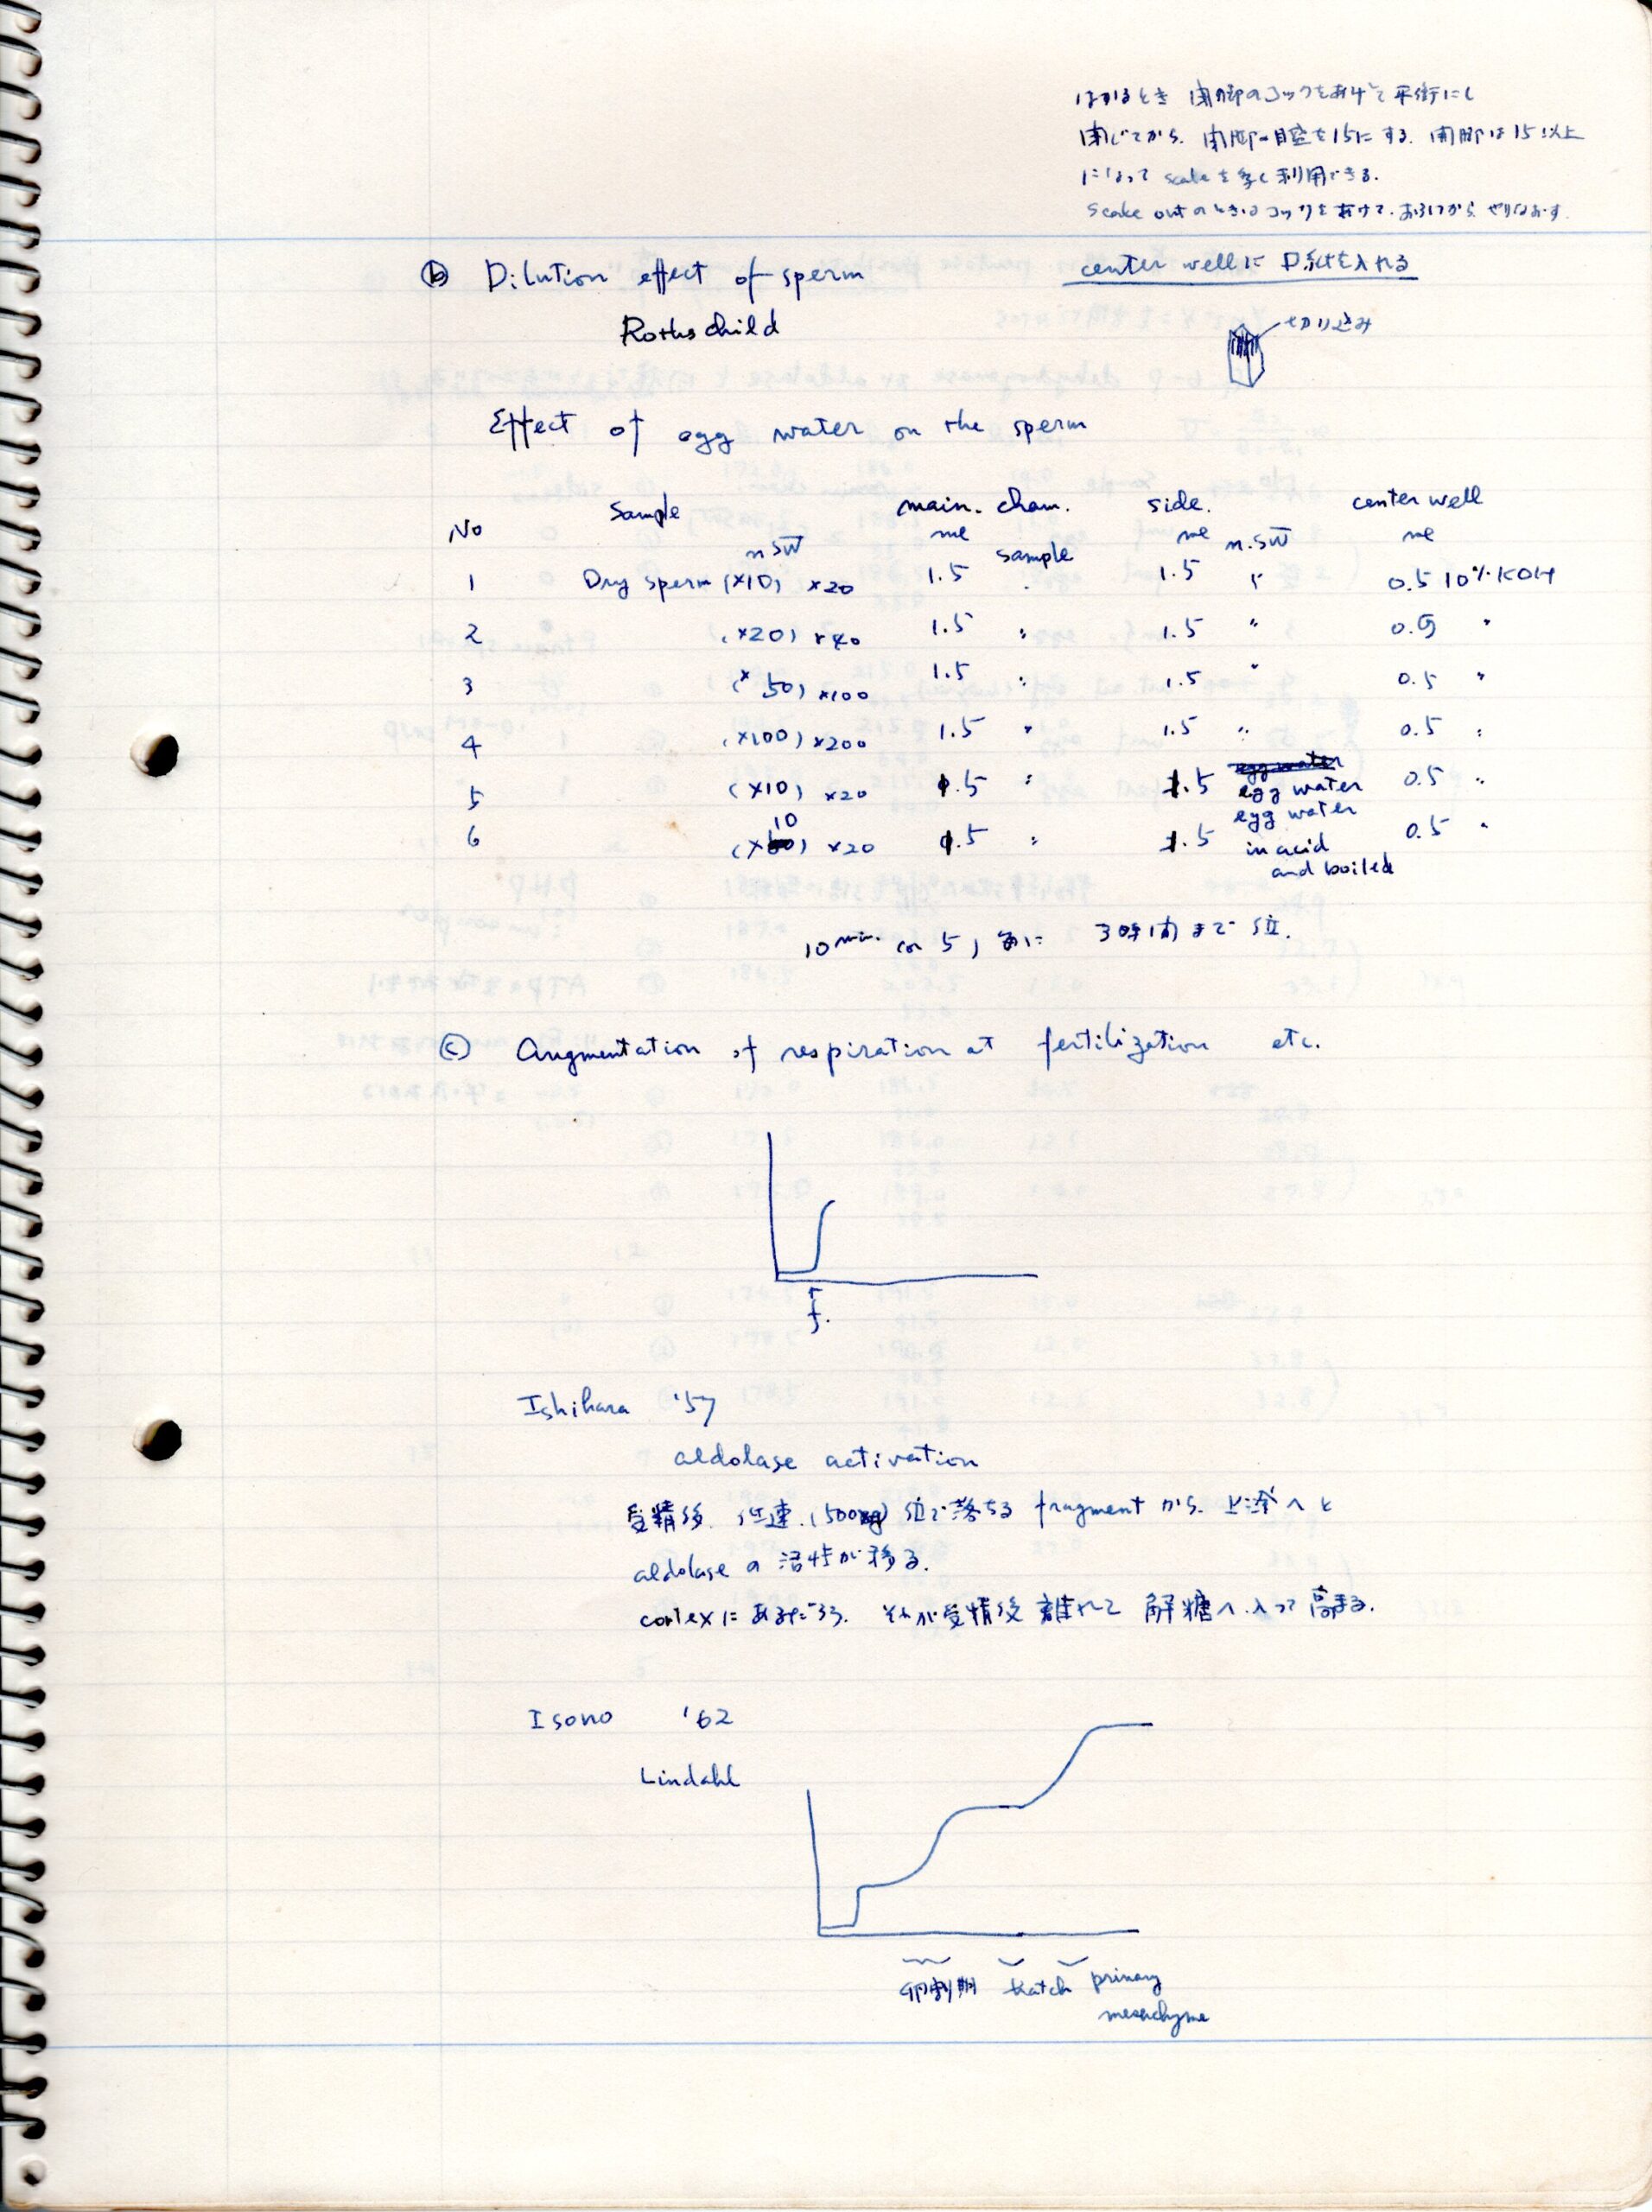 はかるとき 開脚のコックをあけて平衡にし
閉じてから、閉脚の目盛を15にする. 開脚は15以上
になって scaleを多く利用できる.
Scale outのときはコックをあけて、あふってから やりなおす.
ⓑ Dilution effect of sperm
center wellに ロ紙を入れる
Rothschild
切り込み
Effect of egg water on the sperm
No Sample main. cham. side. center well
n SW ml sample ml n.SW ml
1 Dry sperm (×10) ×20 1.5 〃 1.5 〃 0.5 10% KOH
2 (×20) ×40 1.5 〃 1.5 〃 0.5 〃
3 (×50) ×100 1.5 〃 1.5 〃 0.5 〃
4 (×100) ×200 1.5 〃 1.5 〃 0.5 〃
egg water
5 (×10) ×20 1.5 〃 1.5 egg water 0.5 〃
6 (×10) ×20 1.5 〃 1.5 egg water 0.5 〃
in acid
and boiled
10 min. or 5, 毎に 3時間まで位.
ⓒ Augmentation of respiration at fertilization etc.
↑
f.
Ishihara '57
aldolase activation
受精後 低速 (500g) 位で落ちる fragment から 上清へと
aldolase の 活性が移る.
cortexに あるだろう. それが受精後 離れて 解糖へ入って高まる.
Isono '62
Lindahl
卵割期 hatch primary
mesenchyme